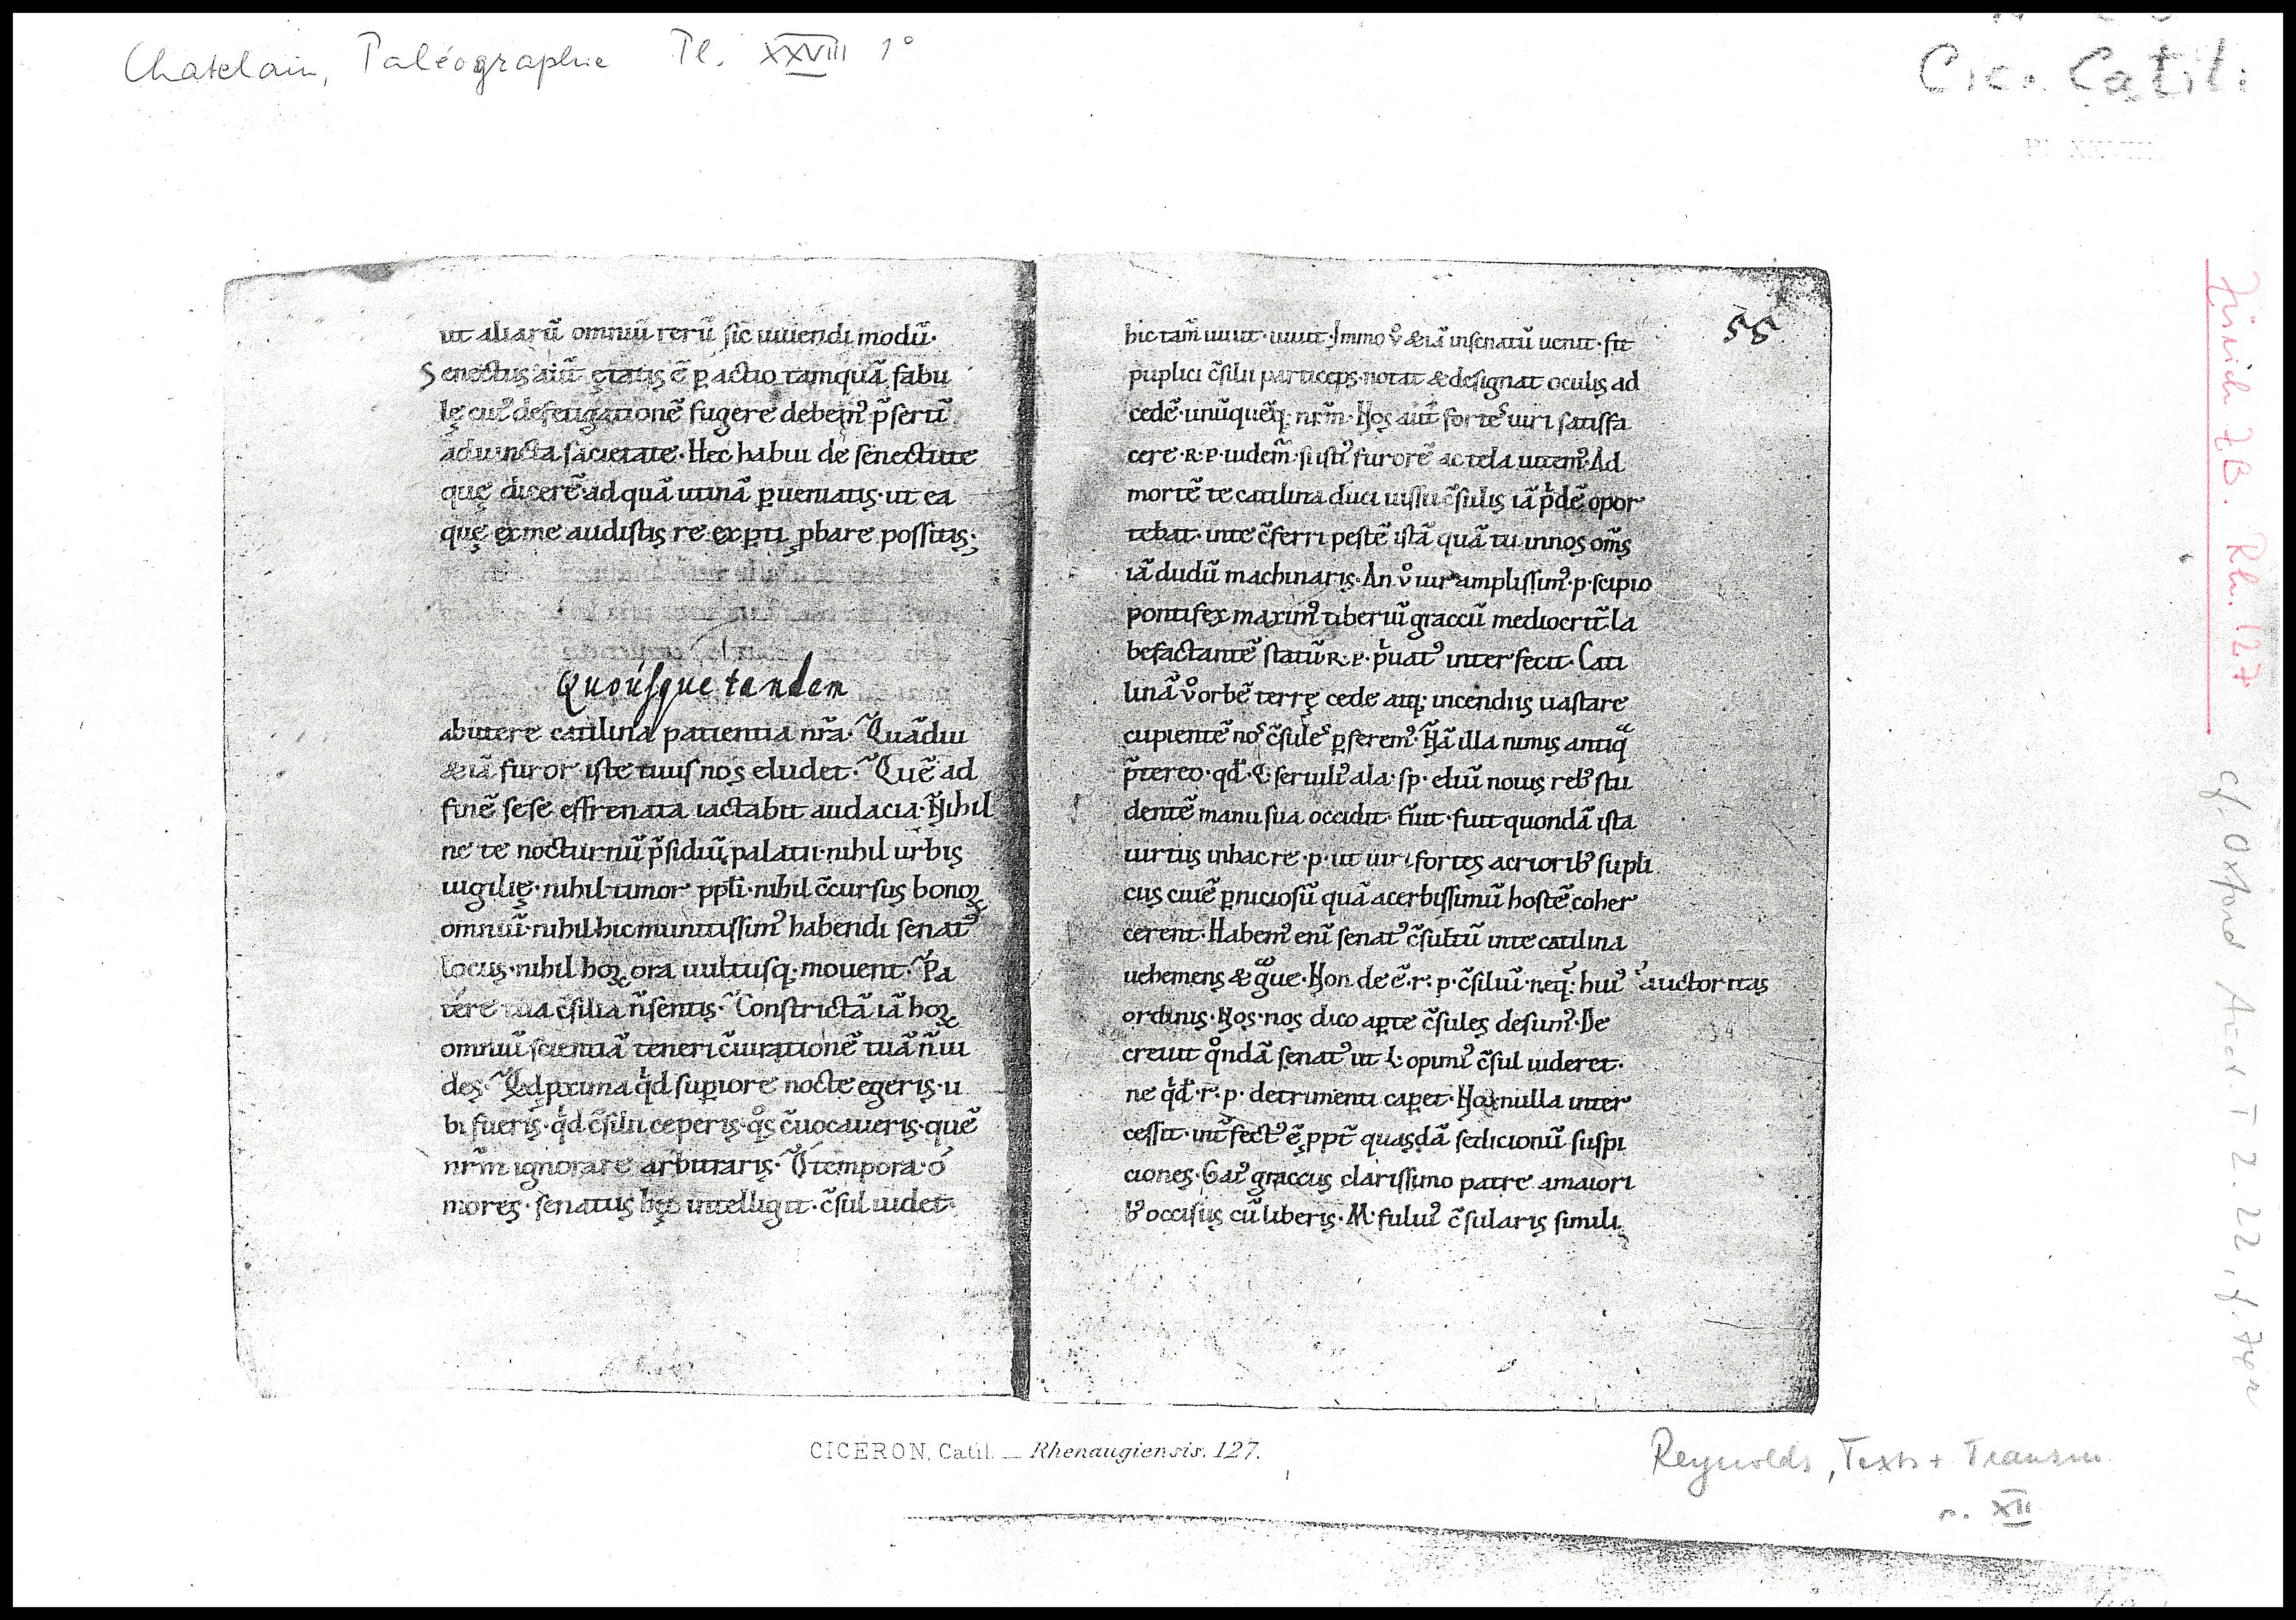 Chatelain, Paléographie Pl. XXVIII 1°
Cic. Catil.
Pl. XXVIII.
ut aliarũ omniũ rerũ sic uiuendi modũ·
Senectus aũt ętatis ẽ ꝑactio tamquã fabu
lę cuiꝰ defetigationẽ fugere debemꝰ p̃sertĩ
adiuncta sacietate· Hec habui de senectute
quę dicerẽ· ad quã utinã ꝑueniatis· ut ea
quę ex me audistis re exꝑti ꝓbare possitis·
Quousque tandem
abutere catilina patientia nr̃a· Quãdiu
& iã furor iste tuus nos eludet· Quẽ ad
finẽ sese effrenata iactabit audacia· Nihil
ne te nocturnũ p̃sidiũ palatii· nihil urbis
uigilię· nihil timor ppl̃i· nihil c̃cursus bonoꝝ
omniũ· nihil hic munitissimꝰ habendi senatꝰ
locus· nihil hoꝝ ora uultusq;· mouent· Pa
tere tua c̃silia ñ sentis· Constrictã iã hoꝝ
omniũ scientiã teneri c̃iurationẽ tuã ñ ui
des· Qd ꝓxima qͥd suꝑiore nocte egeris· u
bi fueris· qͥd c̃silii ceperis· qͦs c̃uocaueris· quẽ
nr̃m ignorare arbitraris· O tempora· ó
mores· senatus hęc intelligit· c̃sul uidet·
55
hic tam̃ uiuit· uiuit· Immo ůo &iã in senatũ uenit· fit
puplici c̃silii particeps· notat & designat oculis ad
cedẽ· unũquẽq; nr̃m· Nos aũt fortes uiri satisfa
cere· R· P· uidem̃· si istiꝰ furorẽ ac tela uitemꝰ· Ad
mortẽ te catilina duci iussu c̃sulis iã pͥdẽ opor
tebat· in te c̃ferri pestẽ istã quã tu in nos om̃s
iã dudũ machinaris· An ůo uir amplissimꝰ· p· scipio
pontifex maximꝰ tiberiũ graccũ mediocrit̃ la
befactantẽ statũ R· P· pͥuatꝰ interfecit· Cati
linã ůo orbẽ terrę cede atq; incendiis uastare
cupientẽ nos c̃sules ꝑferemꝰ· Nã illa nimis antiqͣ
p̃tereo· qd̃· Q· seruiliꝰ ala· sp· eliũ nouis rebꝰ stu
dentẽ manu sua occidit· Fuit· fuit quondã ista
uirtus in hac re· p· ut uiri fortes acrioribꝰ supli
cus ciuẽ ꝑniciosũ quã acerbissimũ hostẽ coher
cerent· Habemꝰ enĩ senatꝰ c̃sultũ in te catilina
uehemens & gͣue· Non deẽ· r· p· c̃siliũ· neq;· huiꝰ auctoritas
ordinis· Nos· nos dico aꝑte c̃sules desumꝰ· De
creuit qͦndã senatꝰ ut L· opimiꝰ c̃sul uideret·
ne qͥd· r· p· detrimenti capet· Nox nulla inter
cessit· int̃fectꝰ ẽ ppt̃ quasdã sedicionũ suspi
ciones· Gaiꝰ graccus clarissimo patre a maiori
bꝰ occisus cũ liberis· M· fuluiꝰ c̃sularis simili
CICÉRON, Catil. — Rhenaugiensis. 127.
Reynolds, Texts + Transm.
n. XII
Zürich ZB. Rh. 127
cf. Oxford Auct. T 2. 22,